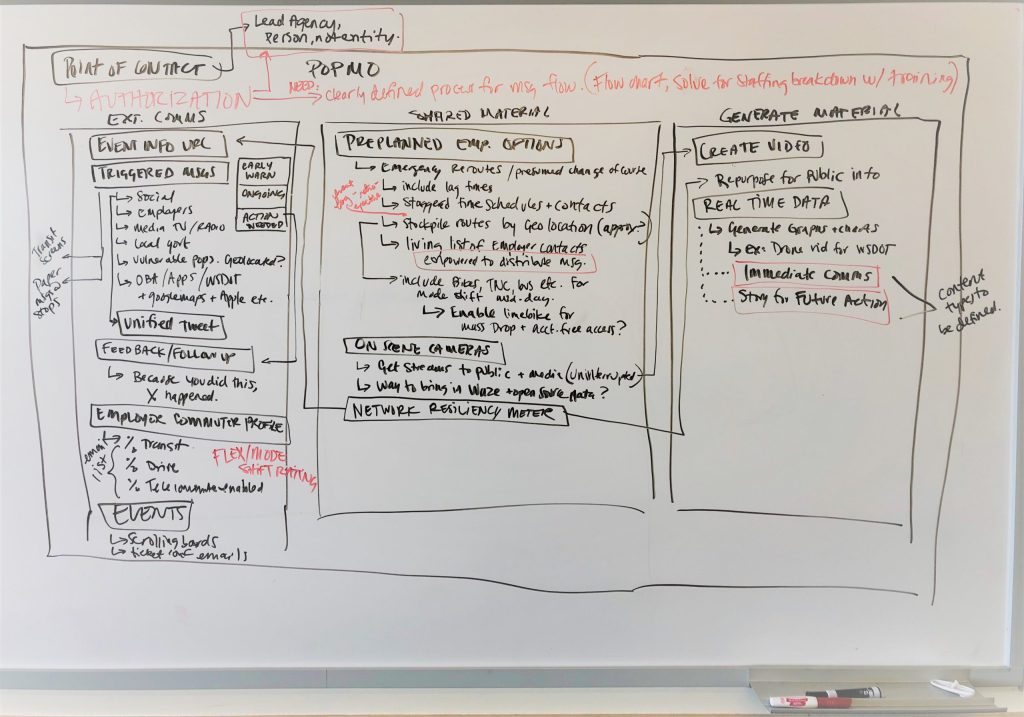 Lead Agency,
Person, not entity.
POINT OF CONTACT
POPMO
↳ AUTHORIZATION
NEED: clearly defined process for msg flow. (Flow chart, solve for staffing breakdown w/ training)
EXT. COMMS
EVENT INFO URL
TRIGGERED MSGS
EARLY
WARN
ONGOING
ACTION
NEEDED
↳ Social
↳ Employers
↳ media TV/RADIO
↳ Local govt
↳ vulnerable pops. Geolocated?
↳ OBA/APPS/WSDOT
+ googlemaps + Apple etc.
Transit
screens
Paper
msg @
stops
Unified Tweet
FEEDBACK/FOLLOW UP
↳ Because you did this,
X happened.
EMPLOYER COMMUTER PROFILE
email
list
% Transit
% Drive
% Telecommute enabled
FLEX/MODE
SHIFT RATING
EVENTS
↳ scrolling boards
↳ ticket conf emails
SHARED MATERIAL
PREPLANNED EMP. OPTIONS
↳ Emergency Reroutes/presumed change of course
↳ include lag times
↳ Staggered time schedules + contacts
↳ Stockpile routes by Geo location (approx?)
↳ living list of Employer Contacts
empowered to distribute msg.
↳ include Bikes, TNC, bus etc. For
mode shift mid-day.
↳ Enable limebike for
mass Drop + acct. free access?
ON SCENE CAMERAS
↳ Get streams to public + media (uninterrupted)
↳ Way to bring in Waze + open source data?
NETWORK RESILIENCY METER
GENERATE MATERIAL
CREATE VIDEO
→ Repurpose for Public info
REAL TIME DATA
↳ Generate Graphs + charts
↳ ex: Drone vid for WSDOT
Immediate Comms
Story for Future Action
content
types to
be defined.